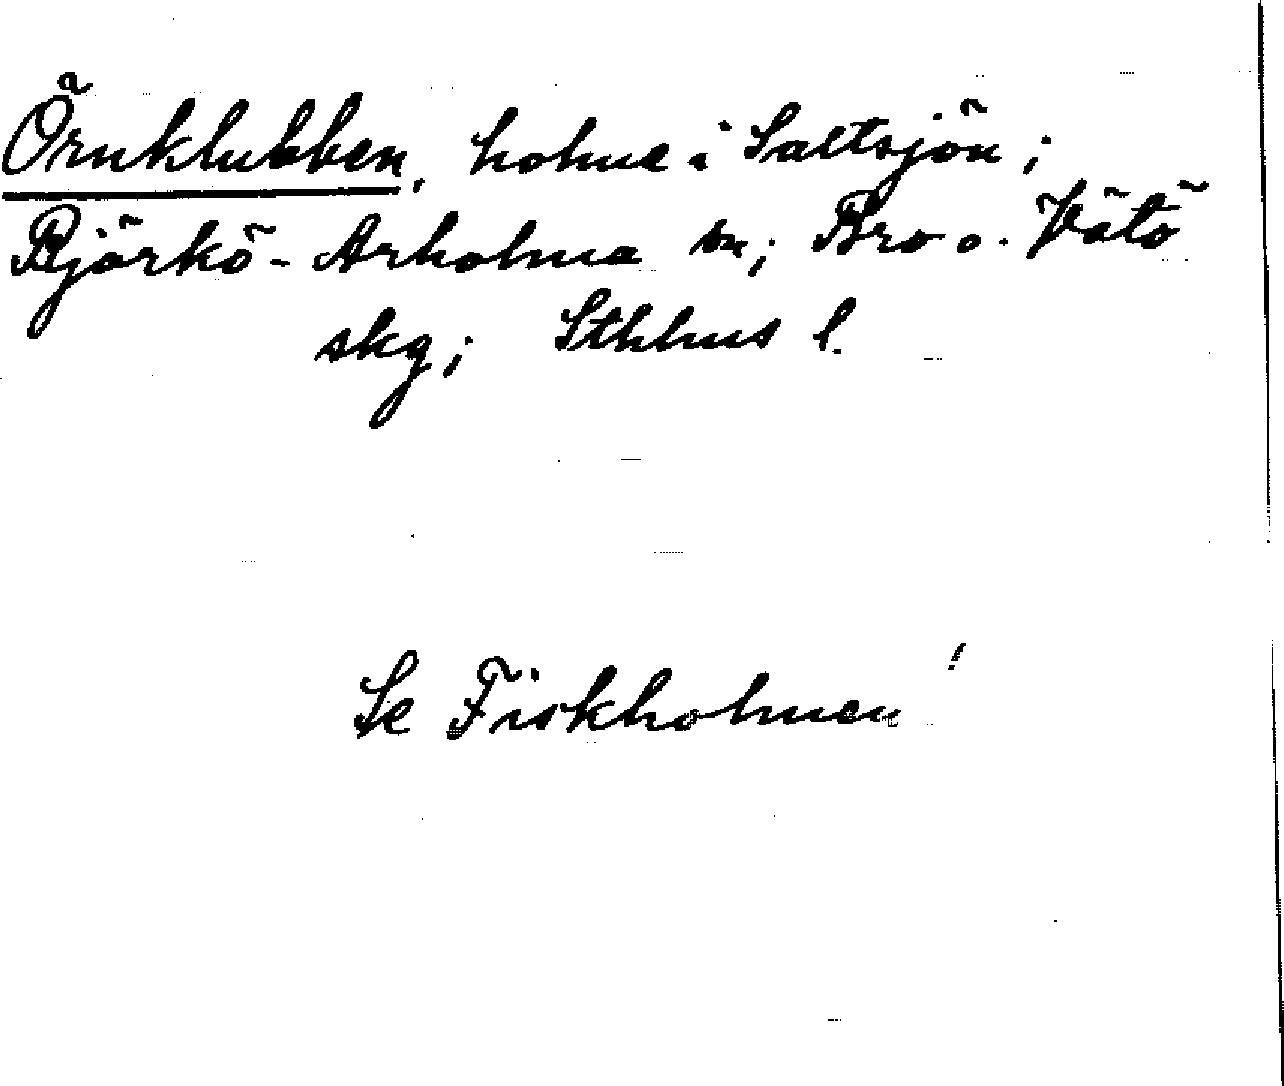 Örnklubben, holme i Saltsjön;
Björkö-Arholma sn; Bro o. Vätö
skg; Sthlms l.
Se Fiskholmen!